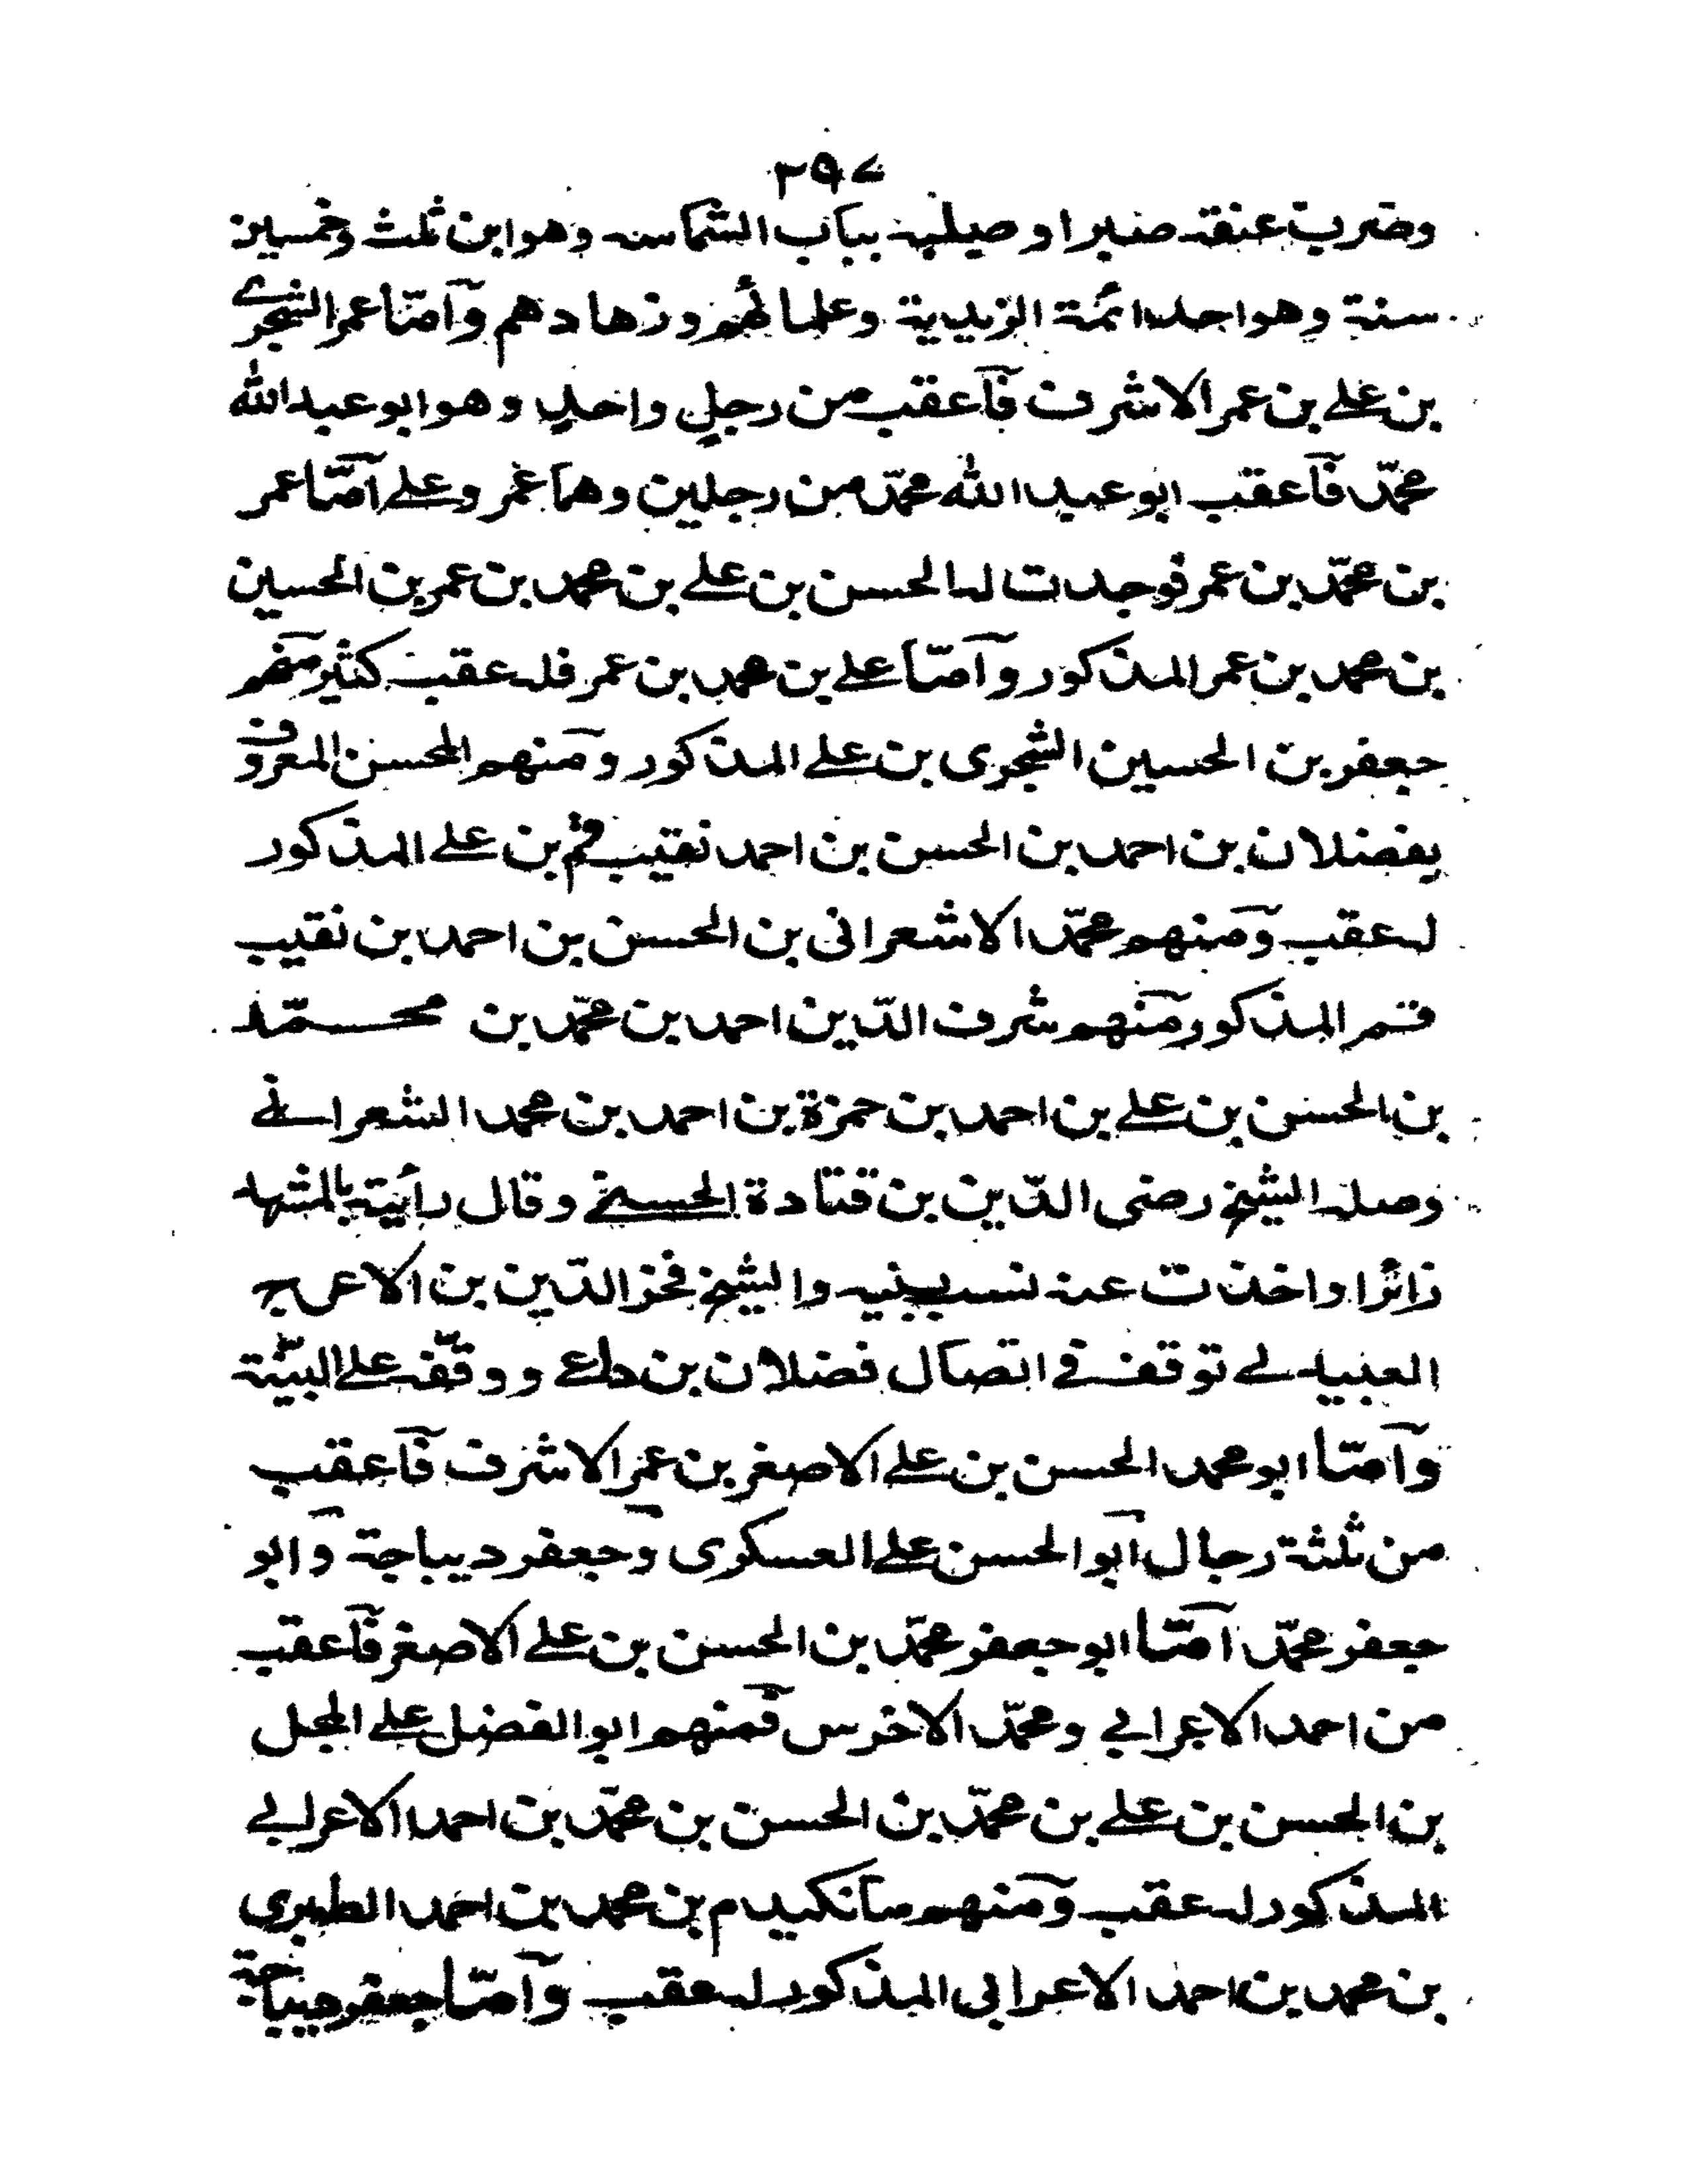 ٢٩٧
وضرب عنقه صبرا و صلبه بباب الشماسه وهو ابن ثلث وخمسين
سنة وهو احد ائمة الزيدية وعلمائهم وزهادهم وأمّا عمر الشجرى
بن على بن عمر الاشرف فأعقب من رجل واحد وهو ابو عبد الله
محمّد فأعقب ابو عبد الله محمّد من رجلين وهما عمر وعلى أمّا عمر
بن محمّد بن عمر فوجدت له الحسن بن على بن محمد بن عمر بن الحسين
بن محمد بن عمر المذكور وأمّا على بن محمد بن عمر فله عقب كثير منهم
جعفر بن الحسين الشجرى بن على المذكور ومنهم المحسن المعروف
بفضلان بن احمد بن الحسن بن احمد نقيب قم بن على المذكور
له عقب ومنهم محمّد الاشعرانى بن الحسن بن احمد بن نقيب
قم المذكور منهم شرف الدّين احمد بن محمّد بن محمّد
بن الحسن بن على بن احمد بن حمزة بن احمد بن محمد الشعرانى
وصله الشيخ رضى الدّين بن قتادة الحسنى وقال رأيته بالمشهد
زائرا واخذت عنه نسب بنيه والشيخ فخر الدّين بن الاعرج
العبيدلى توقف فى اتصال فضلان بن داعى ووقّفه على البيّنة
وأمّا ابو محمد الحسن بن على الاصغر بن عمر الاشرف فأعقب
من ثلثة رجال ابو الحسن على العسكرى وجعفر ديباجة وابو
جعفر محمّد أمّا ابو جعفر محمّد بن الحسن بن على الاصغر فأعقب
من احمد الاعرابى ومحمّد الاخرس فمنهم ابو الفضل على المجل
بن الحسن بن على بن محمّد بن الحسن بن محمّد بن احمد الاعرابى
المذكور له عقب ومنهم مانكيدم بن محمد بن احمد الطبرى
بن محمد بن احمد الاعرابى المذكور له عقب وأمّا جعفر ديباجة